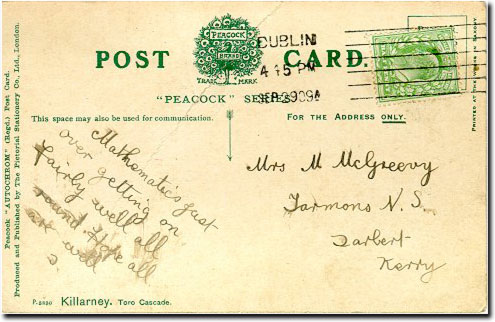 PEACOCK
BRAND
TRADE MARK
POST CARD.
DUBLIN
4 45 PM
"PEACOCK" SERIES
This space may also be used for communication.
FOR THE ADDRESS ONLY.
Mathematics just
over getting on
fairly well all
round Hope all
are well
Mrs M McGreevy
Tarmons N. S.
Tarbert
Kerry
Killarney. Toro Cascade.
Peacock "AUTOCHROM" (Regd.) Post Card.
Produced and Published by The Pictorial Stationery Co., Ltd., London.
PRINTED AT THE WORKS IN SAXONY